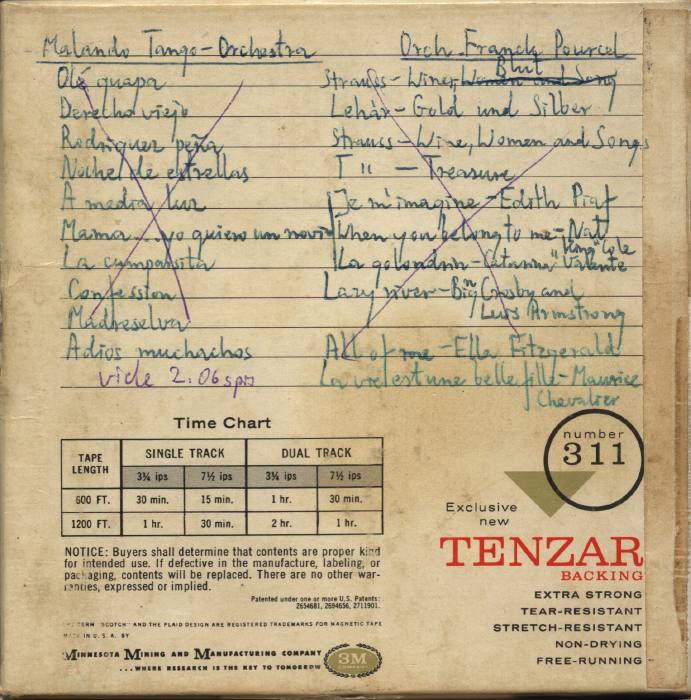 Malando Tango-Orchestra
Olé guapa
Derecho viejo
Rodriguez peña
Noche de estrellas
A media luz
Mama... yo quiero un novio
La cumparsita
Confession
Madreselva
Adios muchachos
Orch. Franck Pourcel
Blut
Strauss - Winer, Women and Song
Lehár - Gold und Silber
Strauss - Wine, Women and Songs
I " - Treasure
Je m'imagine - Edith Piaf
When you belong to me - Nat
"King" Cole
La golondrin - Catarina Valente
Lazy river - Bing Crosby and
Luis Armstrong
All of me - Ella Fitzgerald
La vie est une belle fille - Maurice
Chevalier
Time Chart
TAPE LENGTH SINGLE TRACK DUAL TRACK
3¾ ips 7½ ips 3¾ ips 7½ ips
600 FT. 30 min. 15 min. 1 hr. 30 min.
1200 FT. 1 hr. 30 min. 2 hr. 1 hr.
NOTICE: Buyers shall determine that contents are proper kind
for intended use. If defective in the manufacture, labeling, or
packaging, contents will be replaced. There are no other war-
ranties, expressed or implied.
Patented under one or more U.S. Patents:
2654681, 2694656, 2711901.
TERM "SCOTCH" AND THE PLAID DESIGN ARE REGISTERED TRADEMARKS FOR MAGNETIC TAPE
MADE IN U. S. A. BY
MINNESOTA MINING AND MANUFACTURING COMPANY
...WHERE RESEARCH IS THE KEY TO TOMORROW
3M
COMPANY
number
311
Exclusive
new
TENZAR
BACKING
EXTRA STRONG
TEAR-RESISTANT
STRETCH-RESISTANT
NON-DRYING
FREE-RUNNING